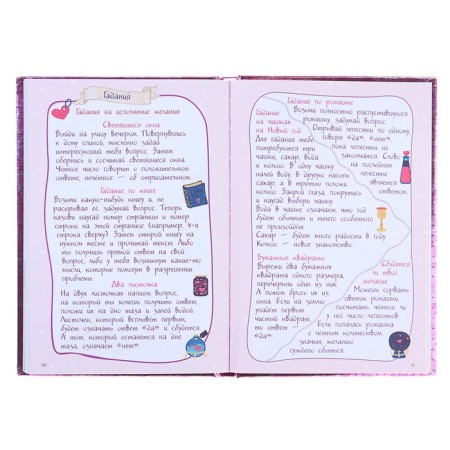 Гадания
Гадания на исполнение желания
Светящиеся окна
Выйди на улицу вечером. Повернувшись
к дому спиной, мысленно задай
интересующий тебя вопрос. Затем
обернись и сосчитай светящиеся окна.
Чётное число говорит о положительном
ответе, нечётное – об отрицательном.
Гадание по книге
Возьми какую-нибудь книгу и, не
раскрывая её, задумай вопрос. Теперь
назови наугад номер страницы и номер
строки на этой странице (например, 4-я
строка сверху). Затем открой книгу на
нужном месте и прочитай текст. Либо
ты получишь прямой ответ на свой
вопрос, либо у тебя возникнут какие-то
мысли, которые помогут в разрешении
проблемы.
Два листочка
На двух листочках напиши вопрос,
на который ты хочешь получить ответ,
положи их на дно таза и залей водой.
Листочек, который всплывёт первым,
будет означать ответ «да» и сбудется.
А тот, который останется на дне
таза, означает «нет».
Гадание
на чашках
на Новый год
Для гадания тебе
потребуются три
чашки, сахар, вода
и кольцо. В одну чашку
налей воду, в другую насыпь
сахар, а в третью положи
кольцо. Закрой глаза, покрутись
и наугад выбери чашку.
Вода в чашке означает, что год
будет обычным и ничего особенного
не произойдёт.
Сахар – будет много радости в году.
Кольцо – новое знакомство.
Гадание по ромашке
Возьми полностью распустившуюся
ромашку, задумай вопрос.
Отрывай лепестки по одному,
говоря «да», «нет»,
пока лепестки не
закончатся. Слово
на последнем
лепестке
является
ответом.
Бумажные квадраты
Вырежи два бумажных
квадрата одного размера,
перечеркни один из них.
А потом брось их из
окна. Если на землю
упадёт первым
чистый квадрат,
то ответ –
«да».
Сбудется
ли твоё
желание
Можешь сорвать
цветок ромашки,
посчитать, сколько
у неё число лепестков.
Если попалась ромашка
с чётным количеством,
значит, желанию
суждено сбыться.